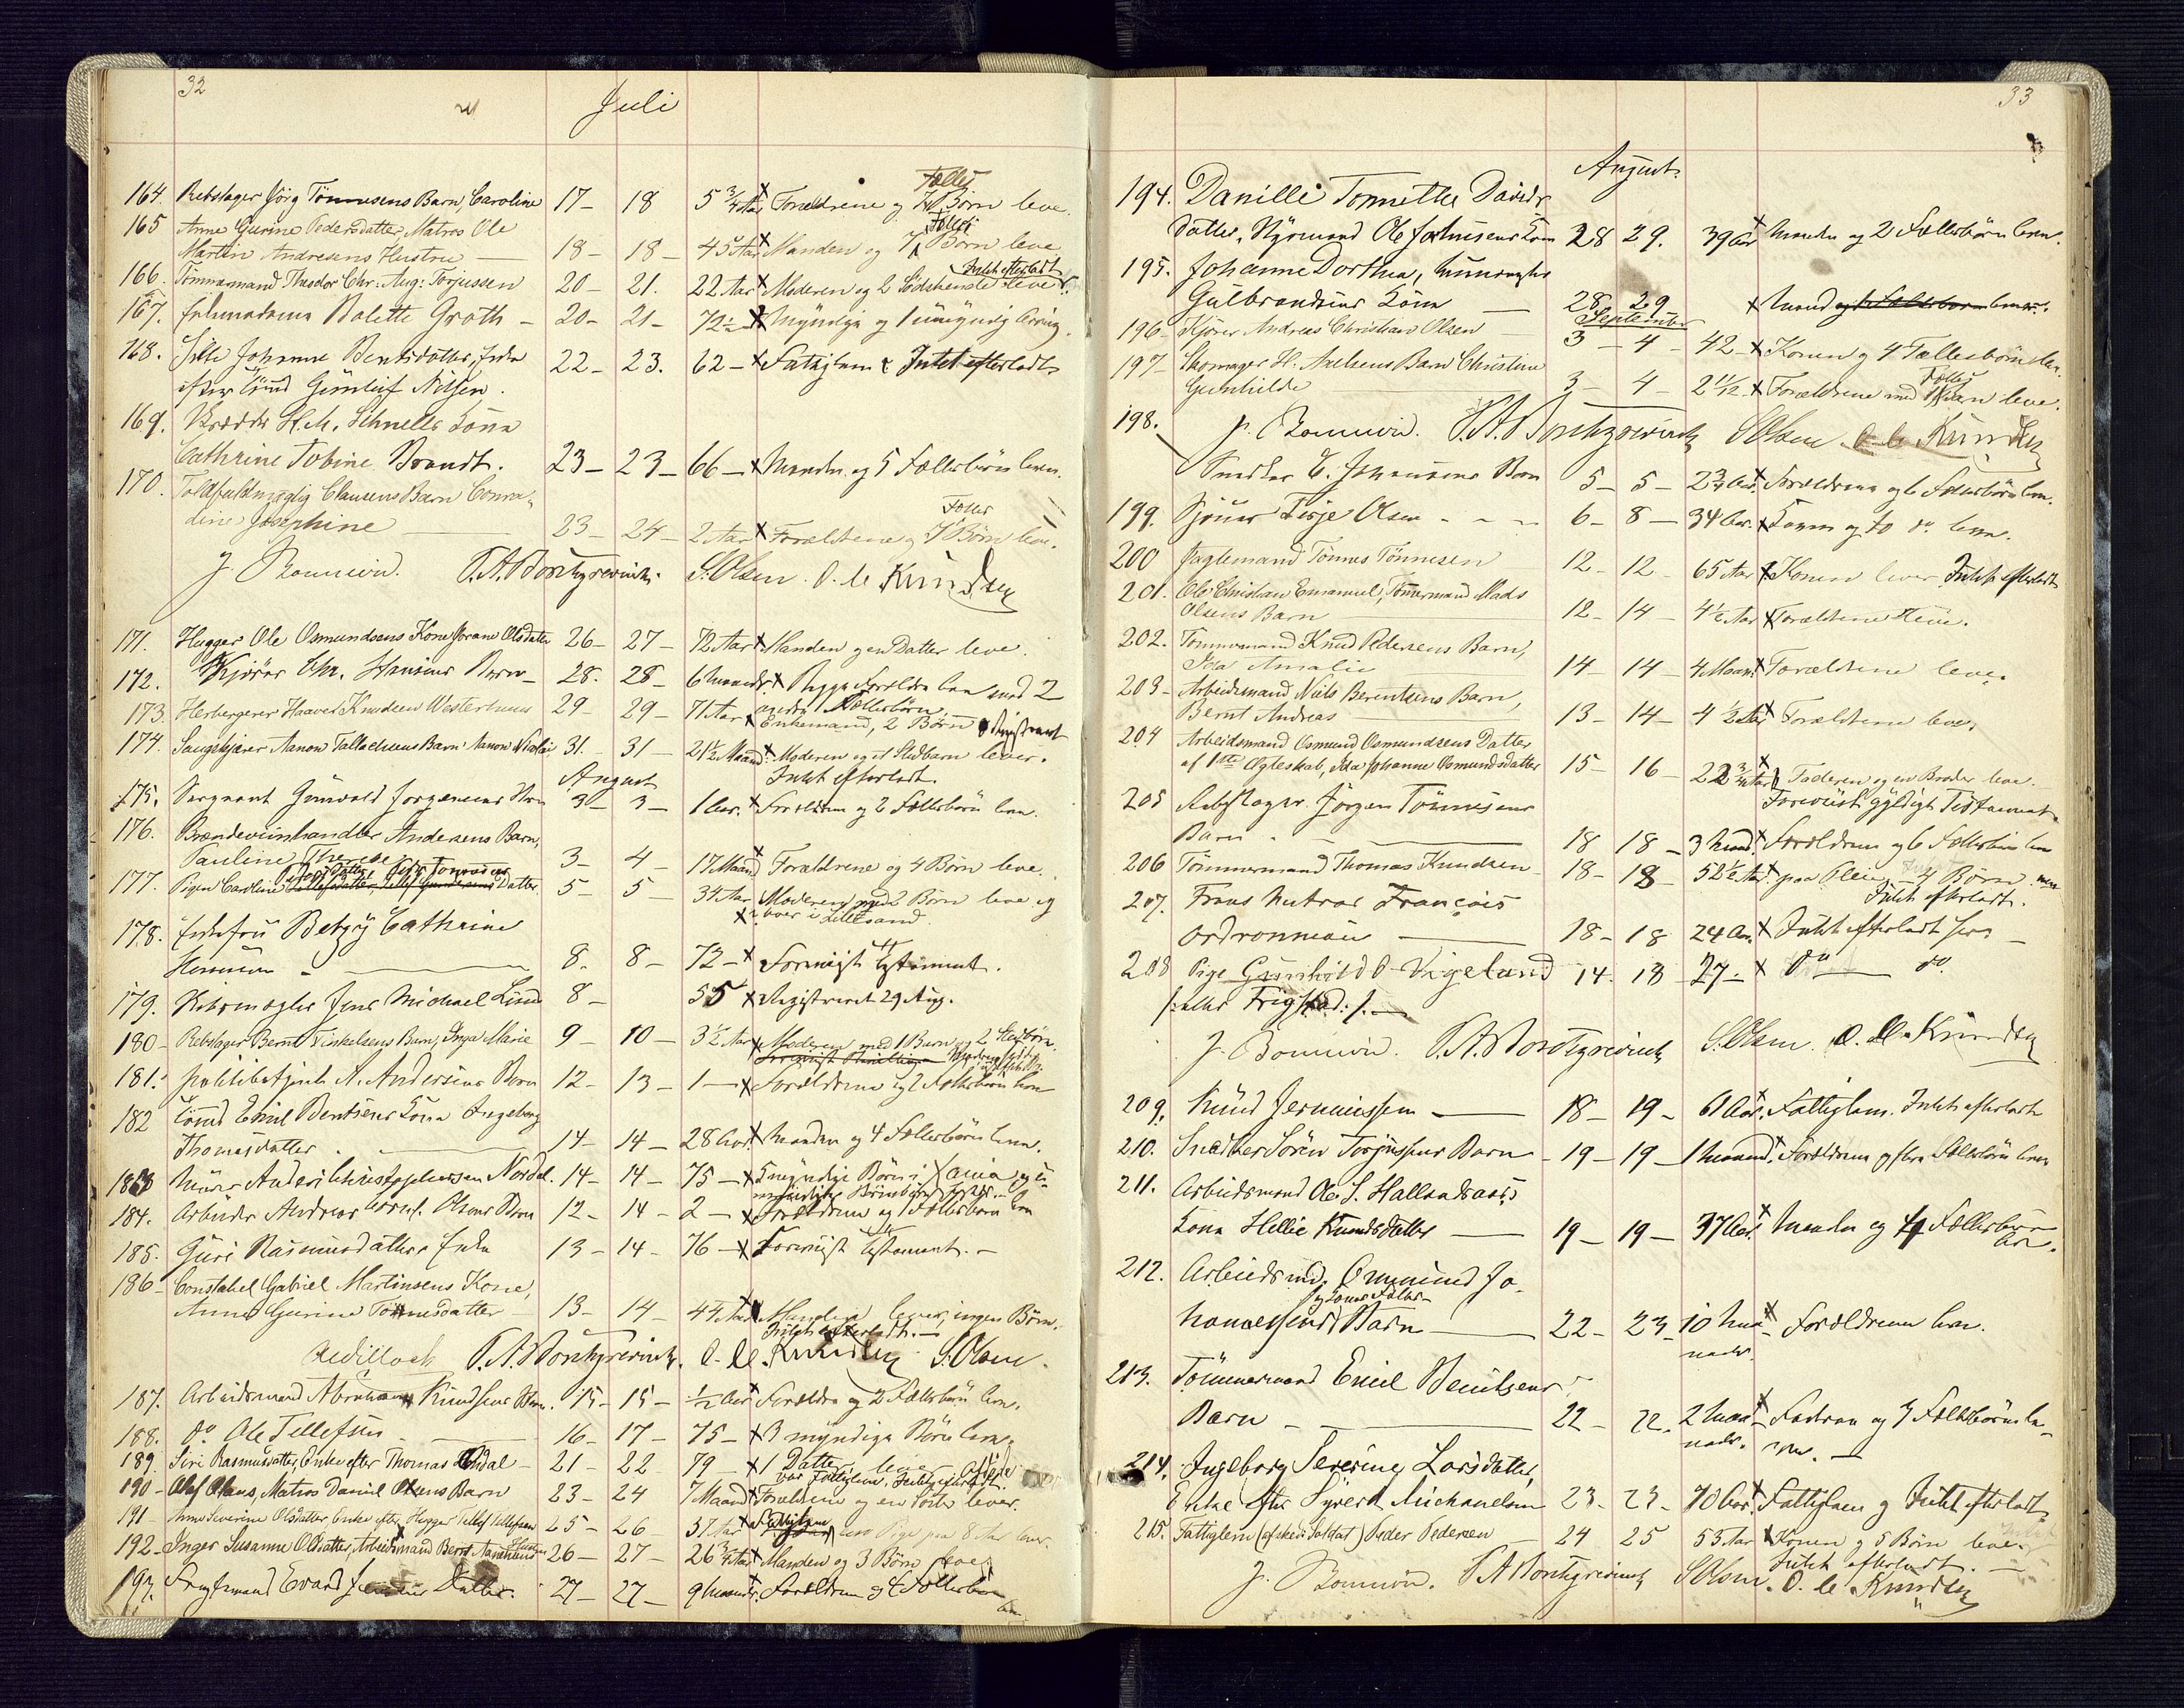 32
Juli
164. Rebslager Jörg Tönnesens Barn, Caroline 17- 18 5 3/4 Aar x Forældrene og 7 Fælles Börn leve.
165 Anne Gurine Pedersdatter Matros Ole
Martin Andresens Hustru - 18- 18- 45 Aar x Manden og 7 Fælles Börn leve
166. Tömmermand Theodor Chr: Aug: Torjussen 20- 21. 22 Aar x Moderen og 2 Södskende lever. Intet efterladt
167. Enkemadame Bolette Groth - 20- 21- 72½ - x Myndige og 1 umyndig Arving.
168. Sille Johanne Bentsdatter, Enke 22- 23. 62- x Fattiglem & Intet efterladt
efter Lönd Gunleif Nilsen.
169. Skrædder H. M. Schnells Kona
Cathrine Tobine Brandt. 23- 23- 66- x Manden og 5 Fællesbörn leve.
170. Toldfuldmægtig Clausens Barn Conra-
dine Josephine 23- 24- 2 Aar x Forældrene og 7 Fælles Börn leve.
J. Bomwin. T.A. Bontgrevink. S. Olsen. O. M. Knudsen
171. Hugger Ole Osmundsens Kone Jorane Olsdatter 26- 27- 72 Aar x Manden og en Datter leve.
172. Kjörer Chr. Hansens Barn - 28. 28- 6 Maaneder. x Begge Forældre leve med 2
andre Fællesbörn.
173. Herbergerer Haaver Knudsen Westerhuus 29- 29- 71 Aar x Enkemand, 2 Börn Registreret
174. Saugskjærer Aanon Tallachsens Barn Aanon Nicolai 31. 31- 21½ Maaned. Moderen og et Stedbarn lever.
Intet efterladt.
August
175. Sergeant Gunvald Jörgensens Barn 3- 3- 1 Aar. x Forældrene og 2 Fællesbörn leve.
176. Brændeviinhandler Andersens Barn,
Pauline Therese 3- 4- 17 Maaned x Forældrene og 4 Börn leve.
177. Pigen Caroline Datter 5- 5- 34 Aar Moderen med 2 Börn leve og
x boer i Lillesand
178. Enkefru Betzy Cathrine
8. 8- 72- x Formigst Testament.
179. Kobsmægler Jens Michael Lund 8- 55 x Registreret 29 Aug.
180- Rebslager Bernt Terkelsens Barn, Inga Marie 9- 10- 3½ Aar x Moderen med 1 Barn og 2 Stedbörn.
181. politibetjent A. Andersens Barn 12- 13- 1- x Forældrene og 2 Fællesbörn leve
182 Lönd Emil Bentsens Kona Ingeborg
Thomasdatter 14- 14- 28 Aar. x Manden og 4 Fællesbörn leve.
183 Murer Anders Christophersen Nordal. 14- 14- 75- x
184. Arbeider Andreas Olsens Barn 12- 14- 2- x Forældrene og 1 Fællesbarn leve
185. Guri Rasmusdatter Enke 13- 14- 76- x Formigst Testament.-
186- Constabel Gabriel Martinsens Kone,
Anne Gurine Tönnesdatter 13- 14- 44 Aar x Manden lever, ingen Börn.
Intet efterladt.-
T.A. Bontgrevink. O. M. Knudsen S. Olsen.
187. Arbeidsmand Abraham Knudsens Barn. 15- 15- ½ Aar x Forældre og 2 Fællesbörn leve.
188. do Ole Tellefsen - 16- 17- 75- x 3 myndige Börn leve
189 Siri Rasmusdatter, Enke efter Thomas Opdal - 21- 22- 79- x 1 Datter lever
var Fattiglem, Intet efterladt
190- Olaf Olaus, Matros Daniel Olsens Barn 23- 24 7 Maaned x Forældrene og en Söster lever.
191- Anne Severine Olsdatter Enke efter Hugger Tellef Tellefsen 25- 26- 37 Aar x Fattiglem Pige paa 8 Aar lever.
192- Inger Susanne Olsdatter, Arbeidsmand Bernt Aanonsens Hustru 26- 27- 26¾ Aar x Manden og 3 Börn leve.
193. Evard Jensens Datter. 27- 27- 9 Maaneder. x Forældrene og 4 Fællesbörn leve
33
August.
194. Danille Tonnette Davids-
datter, Styrmand Ole Johnsens Kone 28 29. 39 Aar x Manden og 2 Fællesbörn leve.
195. Johanne Dorthea,
Gulbrandsens Kona - 28- 29 x Mand og Fællesbörn leve.
September
196- Kjörer Andreas Christian Olsen - 3- 4- 42- x Konen og 4 Fællesbörn leve.
197- Skomager H. Axelsens Barn Christine
Gunhilde 3- 4- 2 11/12 x Forældrene med 1 Fælles Barn leve.
198. J. Bomwin. T.A. Bontgrevink S. Olsen O. M. Knudsen
Snedker E. Johansens Barn 5- 5- 2¾ Aar. x Forældrene og 6 Fællesbörn leve.
199. Sjömand Terje Olsen - - - 6- 8- 34 Aar. x Konen og to do leve.
200 Fagtemand Tönnes Tönnesen 12- 12- 65 Aar x Konen lever Intet efterladt
201. Ole Christian Emanuel, Tömmermand Mads
Olsens Barn - 12- 14- 4½ Aar x Forældrene leve.
202. Tömmermand Knud Pedersens Barn,
Ida Amalie 14- 14- 4 Maan. x Forældrene leve.
203- Arbeidsmand Niels Berentsens Barn,
Bernt Andreas 13- 14- 4½ Aar x Forældrene leve.
204 Arbeidsmand Osmund Osmundsens Datter
af 1ste Ægteskab, Ida Johanne Osmundsdatter 15- 16- 22¾ Aar x Faderen og en Broder leve.
Foreviist gyldigt Testament.
205 Rebslager Jörgen Tönnesens
Barn - 18 18- 3 Maaned. x Forældrene og 6 Fællesbörn leve
206 Tömmermand Thomas Knudsen - 18- 18- 52½ Aar x paa Pleie - 4 Börn men
Intet efterladt.
207. Frans Matros François
Ordronneau - 18- 18 24 Aar. x Intet efterladt her -
208 Pige Gunhild O. Vigeland 14. 18 27- x do - do
/: eller Frigstad :/.-
J. Bomwin. T.A. Bontgrevink S. Olsen. O. M. Knudsen
209. Knud Jermunssen - 18- 19- 61 Aar. x Fattiglem. Intet efterladt
210. Snedker Sören Torjussens Barn - 19- 19- 1 Maaned. x Forældrene og flere Fællesbörn leve
211. Arbeidsmand Ole S. Hallandsaas's
Kona Hellie Knudsdatter - 19- 19- 37 Aar. x Manden og 4 Fællesbörn
leve.
212. Arbeidsmd. Ommund Jo-
hannessens Barn - 22- 23- 10 Maa- x Forældrene leve.
neder.
213. Tömmermand Emil Bentsens
Barn - 22- 22. 2 Maa- x Fadren og 4 Fællesbörn le-
neder. ver.-
214. Ingeborg Severine Larsdatter,
Enke efter Syvert Michaelsen 23- 23- 70 Aar. x Fattiglem og Intet efterladt
215. Fattiglem (afskedi: Soldat) Peder Pedersen - 24 25 53 Aar x Konen og 5 Börn leve.
Intet efterladt.-
J. Bomwin. T.A. Bontgrevink S. Olsen. O. M. Knudsen